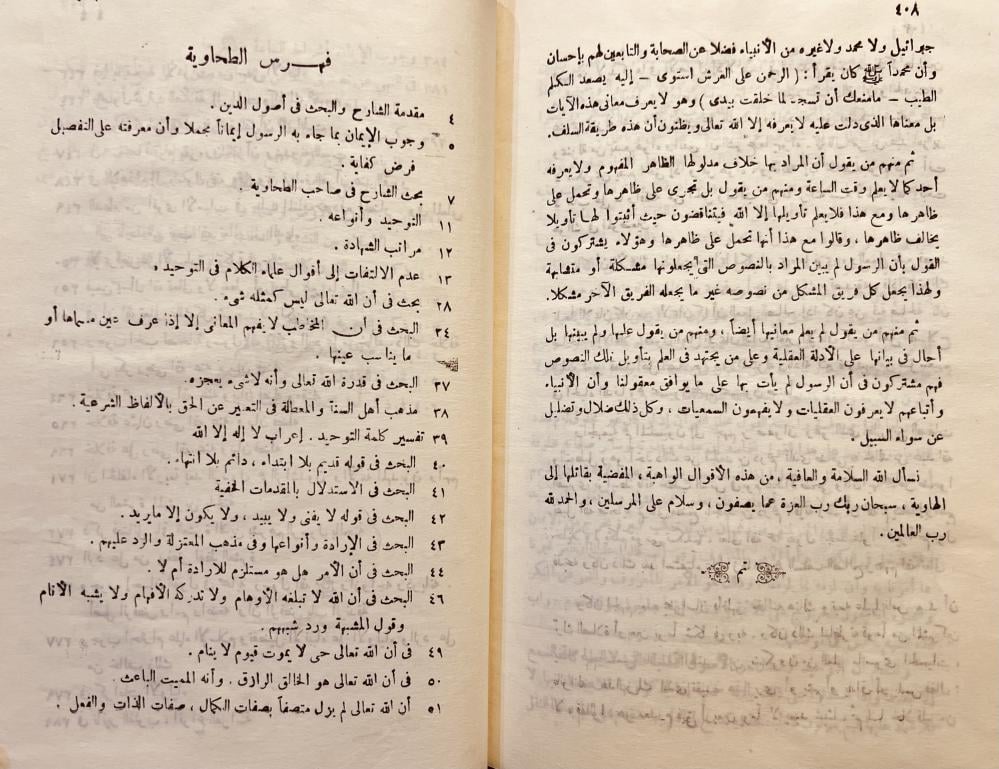 ٤٠٨
جبرائيل ولا محمد ولاغيره من الأنبياء فضلا عن الصحابة والتابعين لهم بإحسان
وأن محمداً ﷺ كان يقرأ : ( الرحمن على العرش استوى – إليه يصعد الكلم
الطيب – مامنعك أن تسجد لما خلقت بيدى ) وهو لا يعرف معانى هذه الآيات
بل معناها الذى دلت عليه لا يعرفه إلا الله تعالى ويظنون أن هذه طريقة السلف.
ثم منهم من يقول أن المراد بها خلاف مدلولها الظاهر المفهوم ولايعرفه
أحد كما لا يعلم وقت الساعة ومنهم من يقول بل تجرى على ظاهرها وتحمل على
ظاهرها ومع هذا فلايعلم تأويلها إلا الله فيتناقضون حيث أثبتوا لهـا تأويلا
يخالف ظاهرها ، وقالوا مع هذا أنها تحمل على ظاهرها وهؤلاء يشتركون فى
القول بأن الرسول لم يبين المراد بالنصوص التى يجعلونها مشكلة أو متشابهة
ولهذا يجعل كل فريق المشكل من نصوصه غير ما يجعله الفريق الآخر مشكلا.
ثم منهم من يقول لم يعلم معانيها أيضاً ، ومنهم من يقول علمها ولم يبينها بل
أحال فى بيانها على الأدلة العقلية وعلى من يجتهد فى العلم بتأويل تلك النصوص
فهم مشتركون فى أن الرسول لم يأت بها على ما يوافق معقولنا وأن الأنبياء
وأتباعهم لا يعرفون العقليات ولا يفهمون السمعيات ، وكل ذلك ضلال وتضليل
عن سواء السبيل .
نسأل الله السلامة والعافية ، من هذه الأقوال الواهية ، المفضية بقائلها إلى
الهاوية ، سبحان ربك رب العزة عما يصفون ، وسلام على المرسلين ، والحمد لله
رب العالمين .
تم
فهـرس الطحاوية
٤ مقدمة الشارح والبحث فى أصول الدين .
٥ وجوب الإيمان بما جاء به الرسول إيماناً مجملا وأن معرفته على التفصيل
فرض كفاية .
٧ بحث الشارح فى صاحب الطحاوية .
١١ التوحيد وأنواعه .
١٢ مراتب الشهادة .
١٣ عدم الالتفات إلى أقوال علماء الكلام فى التوحيد .
٢٨ بحث فى أن الله تعالى ليس كمثله شىء .
٣٤ البحث فى أن المخاطب لا يفهم المعانى إلا إذا عرف عين مسماها أو
ما يناسب عينها .
٣٧ البحث فى قدرة الله تعالى وأنه لا شىء يعجزه.
٣٨ مذهب أهل السنة والمعطلة فى التعبير عن الحق بالألفاظ الشرعية .
٣٩ تفسير كلمة التوحيد . إعراب لا إله إلا الله
٤٠ البحث فى قوله قديم بلا ابتداء ، دائم بلا انتهاء.
٤١ البحث فى الاستدلال بالمقدمات الخفية
٤٢ البحث فى قوله لا يفنى ولا يبيد ، ولا يكون إلا مايريد .
٤٣ البحث فى الإرادة وأنواعها وفى مذهب المعتزلة والرد عليهم .
٤٤ البحث فى أن الأمر هل هو مستلزم للارادة أم لا .
٤٦ البحث فى أن الله لا تبلغه الأوهام ولا تدركه الأفهام ولا يشبه الأنام
وقول المشبهة ورد شبههم .
٤٩ فى أن الله تعالى حى لا يموت قيوم لا ينام .
٥٠ فى أن الله تعالى هو الخالق الرازق . وأنه المميت الباعث .
٥١ أن الله تعالى لم يزل متصفاً بصفات الكمال ، صفات الذات والفعل .